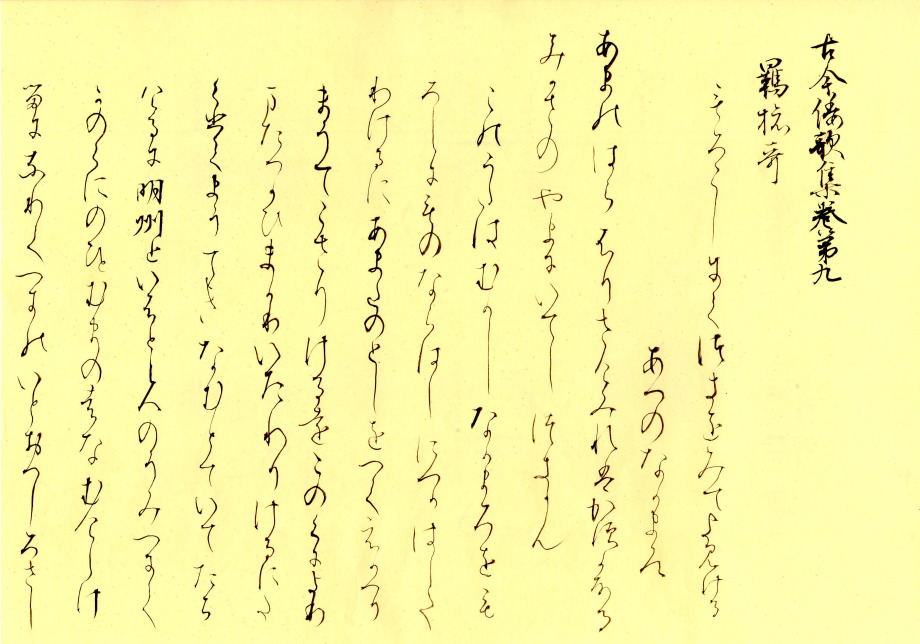 古今倭歌集巻第九
羈旅哥
もろこしにて 月をみてよみける
あへのなかまろ
あまのはらふりさけみれはかすかなる
みかさのやまにいてしつきかも
このうたはむかしなかまろをも
ろこしにものならはしにつかはした
りけるにあまたのとしをへてえかへり
まうてこさりけるをこのくによりま
たつかひまかりいたりけるにた
くひてまうてきなむとていてたち
けるに明州といふところのうみへにて
かのくにのひとむまのはなむけしけ
りよるになりてつきのいとおもしろくさし